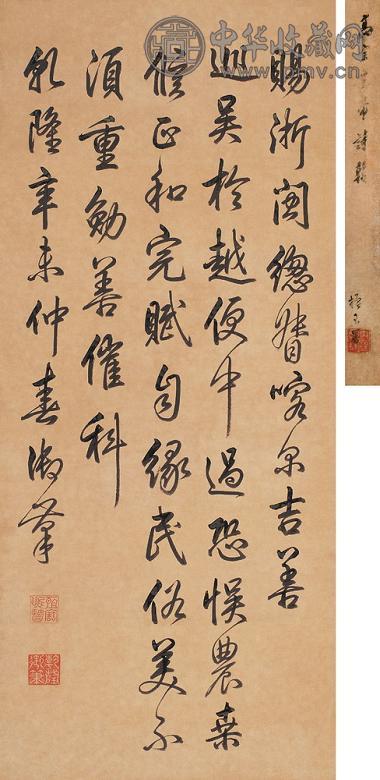 賜浙閩總督喀尔吉善
巡吳於越便中過恐悮農桒
候正和完賦自緣民俗美不
須重勉善催科
乾隆辛未仲春御筆
中华收藏网